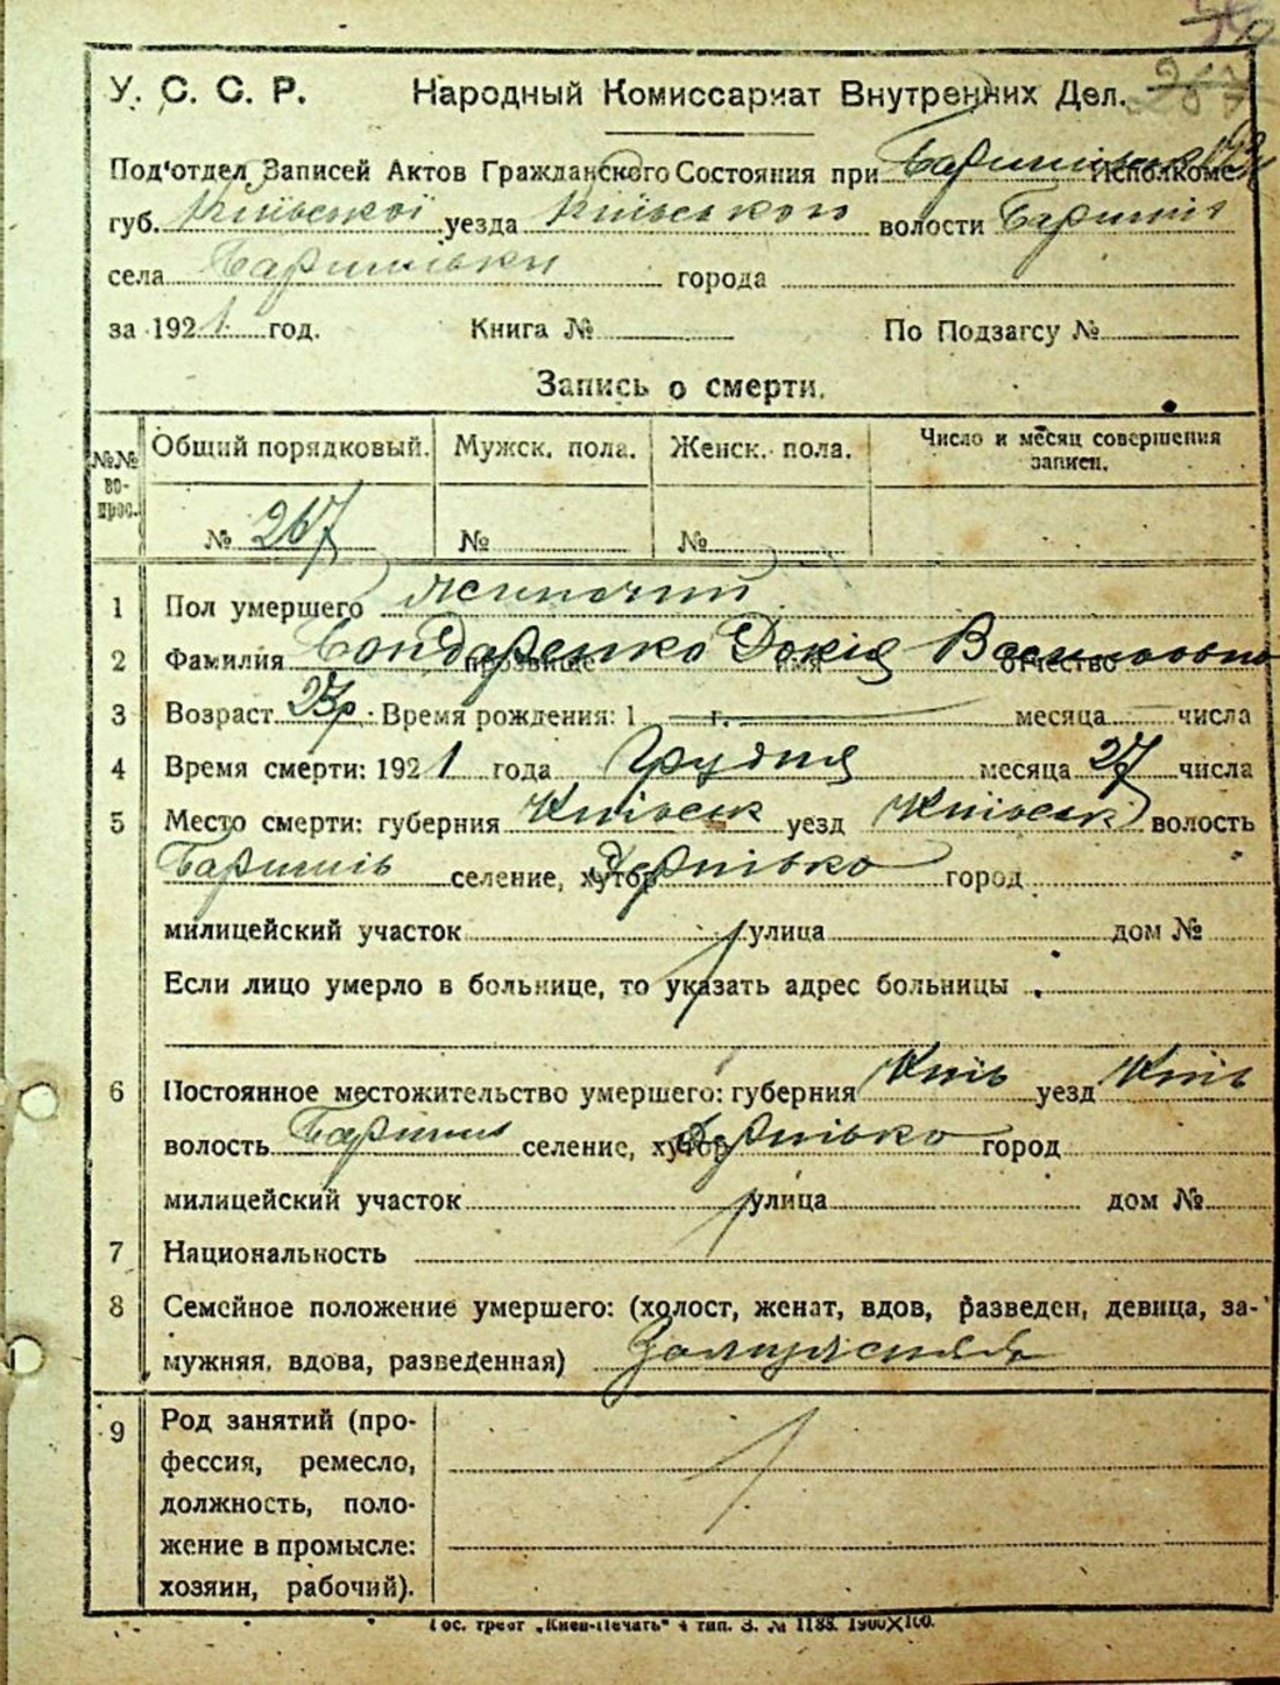 У. С. С. Р. Народный Комиссариат Внутренних Дел.
Под'отдел Записей Актов Гражданского Состояния при Исполкоме
губ. Київської уезда Київського волости Баришпіл
села города
за 1921 год. Книга № По Подзагсу №
Запись о смерти.
№№ вопрос. Общий порядковый. Мужск. пола. Женск. пола. Число и месяц совершения записи.
№ 267 № №
1 Пол умершего жиночий
2 Фамилия Бондаренко Докія Василовна
прозвище имя отчество
3 Возраст 23 р. Время рождения: 1 г. месяца числа
4 Время смерти: 1921 года Грудня месяца 27 числа
5 Место смерти: губерния Київськ уезд Київськ волость
Баришпіль селение, хутор город
милицейский участок улица дом №
Если лицо умерло в больнице, то указать адрес больницы
6 Постоянное местожительство умершего: губерния Київ уезд Київ
волость Баришпіл селение, хутор город
милицейский участок улица дом №
7 Национальность
8 Семейное положение умершего: (холост, женат, вдов, разведен, девица, за-
мужняя, вдова, разведенная) Замужсняя
9 Род занятий (про-
фессия, ремесло,
должность, поло-
жение в промысле:
хозяин, рабочий).
Гос. трест „Киев-Печать" 4 тип. З. № 1188. 1900×100.